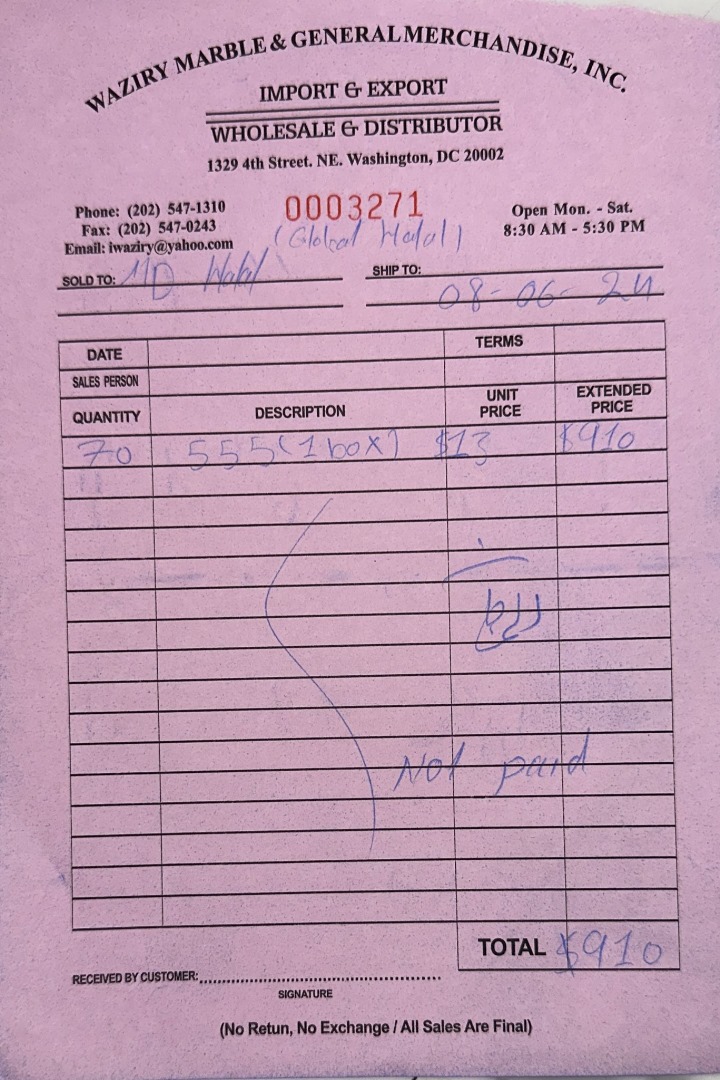 WAZIRY MARBLE & GENERAL MERCHANDISE, INC.
IMPORT & EXPORT
WHOLESALE & DISTRIBUTOR
1329 4th Street. NE. Washington, DC 20002
Phone: (202) 547-1310
Fax: (202) 547-0243
Email: iwaziry@yahoo.com
0003271
Open Mon. - Sat.
8:30 AM - 5:30 PM
(Global Halal)
SOLD TO: MD Halal
SHIP TO:
08-06-24
DATE TERMS
SALES PERSON
QUANTITY DESCRIPTION UNIT PRICE EXTENDED PRICE
70 555 (1 box) $13 $910
Not paid
TOTAL $910
RECEIVED BY CUSTOMER:
SIGNATURE
(No Retun, No Exchange / All Sales Are Final)